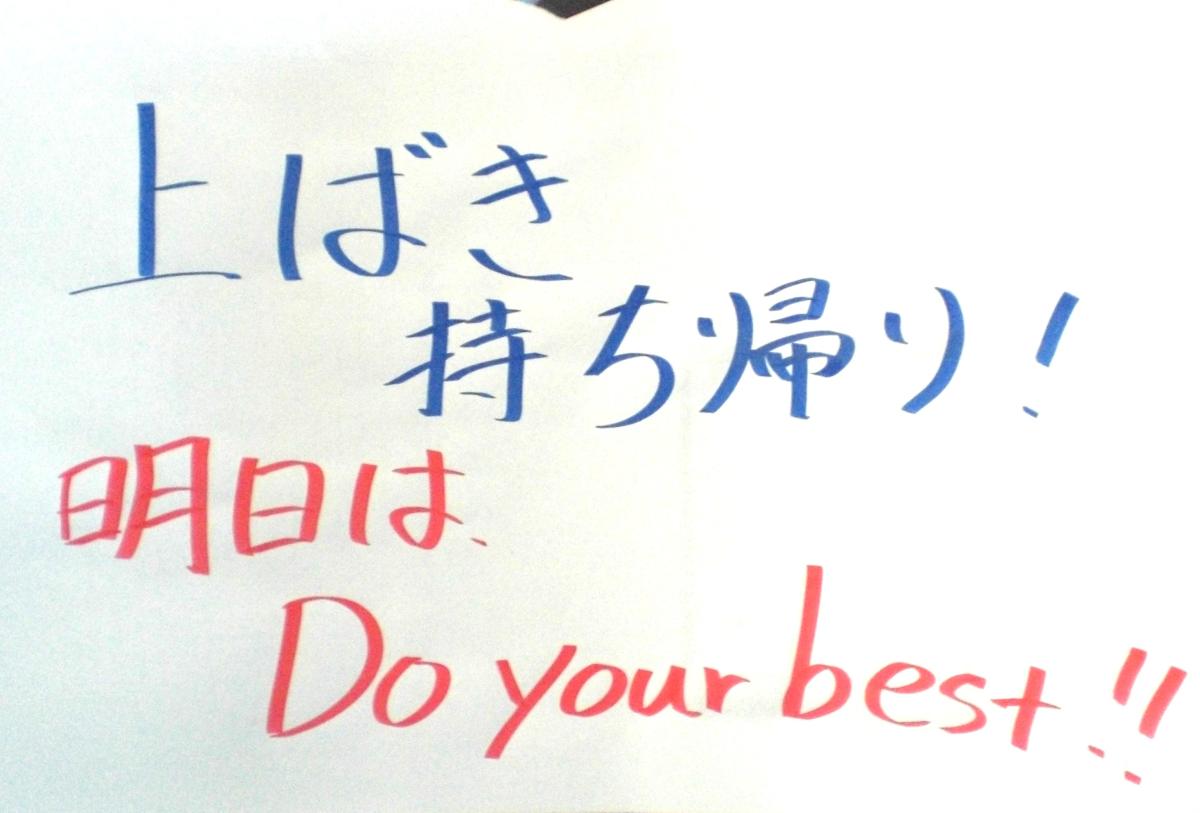 上ばき
持ち帰り!
明日は、
Do your best!!